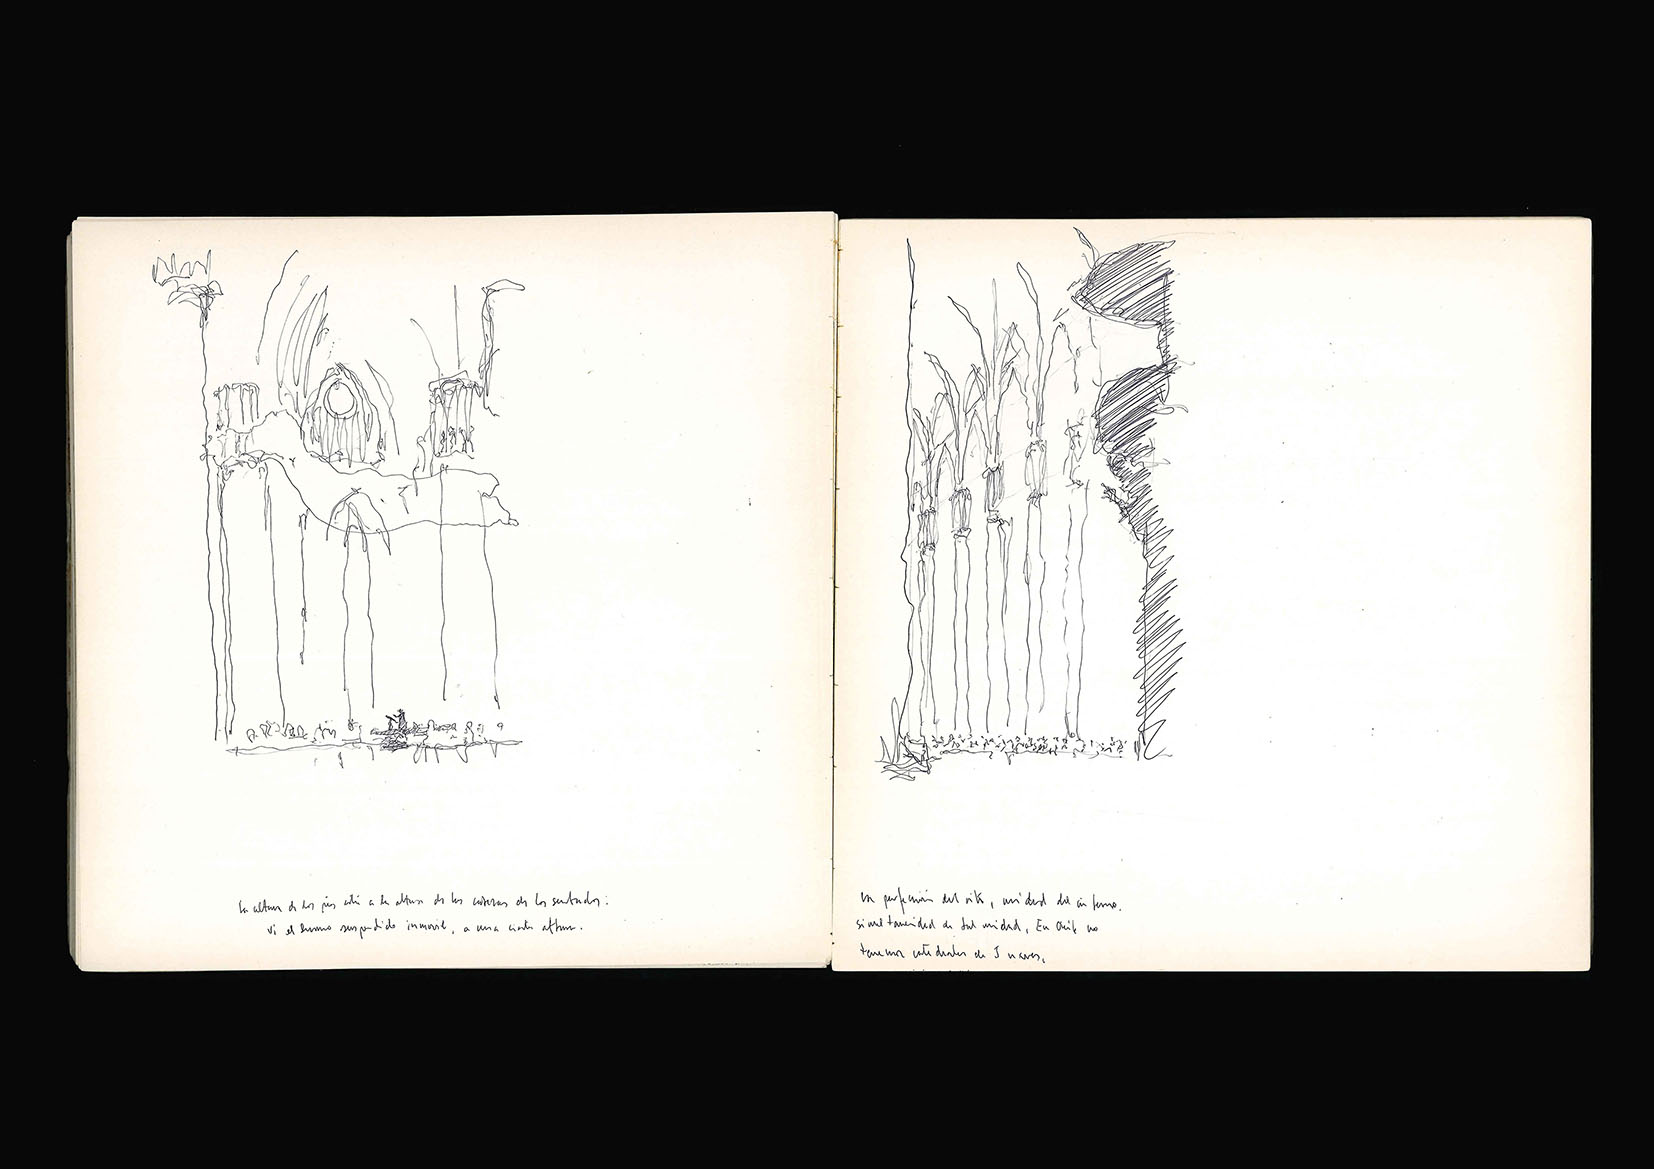 la altura de los pies está a la altura de las cabezas de los sentados.
vi el humo suspendido inmovil, a una cierta altura.
la perfección del rito, unidad del
simultaneidad de tal unidad, En Chile no
tenemos catedrales de 5 naves,